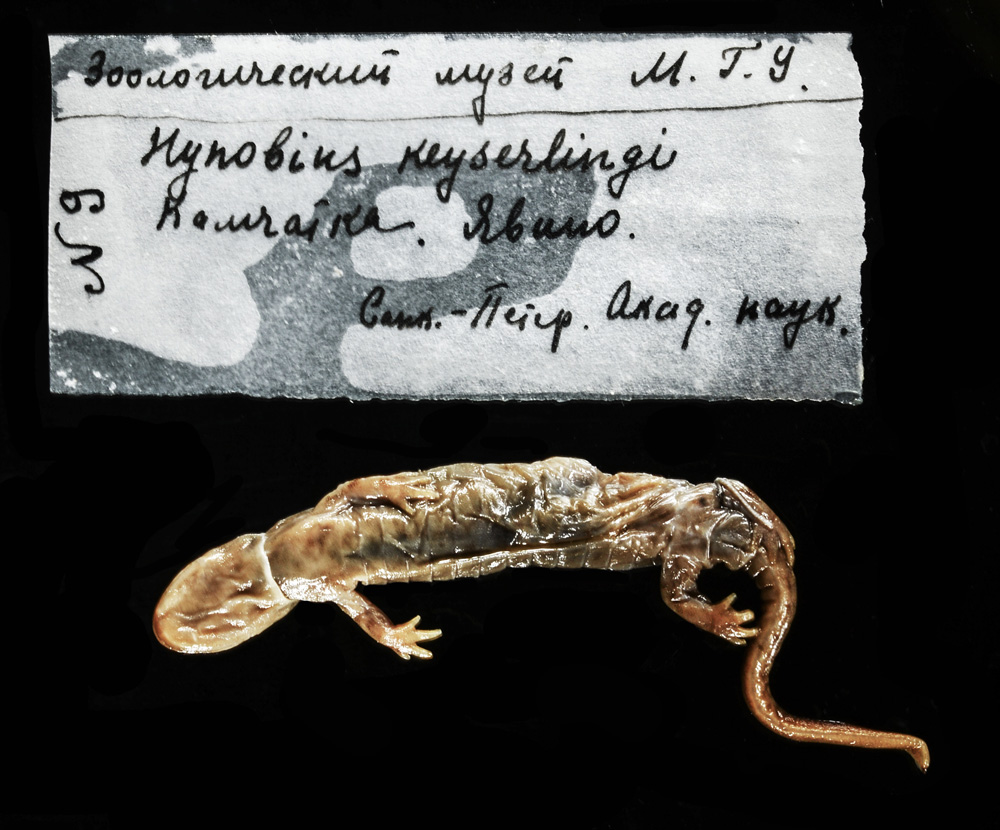 Зоологический музей М. Г. У.
Hynobius keyserlingi
Камчатка. Явино.
Санк.-Петер. Акад. наук.
№ 9